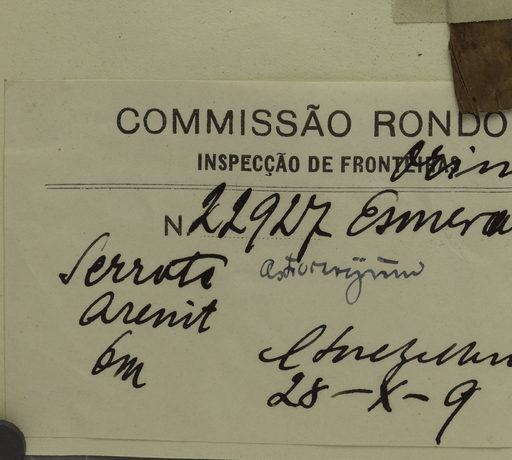 COMMISSÃO RONDO
INSPECÇÃO DE FRONTEIRAS
N 22927 Esmera
Serrote
Arenit
6m
28-X-9